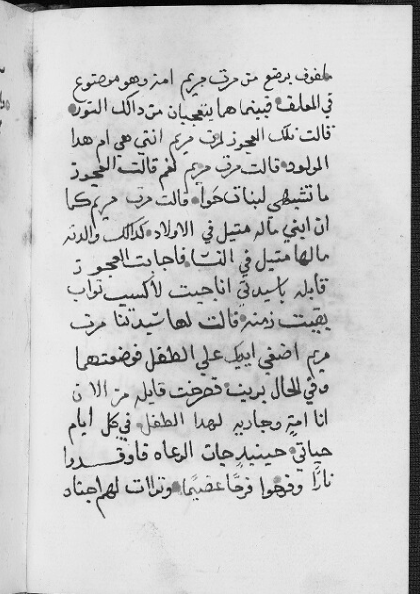 ملفوف يرضع من مرت مريم امه وهو موضوع
في المعلف فبينما هما يتعجبان من داك النور
قالت تلك العجوز لمرت مريم انتي هي ام هدا
المولود قالت مرت مريم نعم قالت العجوز
ما تشبهي لبنات حوا قالت مرت مريم كما
ان ابني ماله متيل في الاولاد كدالك والدته
مالها متيل في النسا فاجابت العجوز
قايله ياسيدتي انا جيت لاكسب تواب
يبقيت زمنه قالت لها ستنا مرت
مريم اضفي ايديك علي الطفل فوضعتهما
وفي الحال بريت فخرجت قايله من الان
انا امة وجاريه لهدا الطفل في كل ايام
حياتي حينيد جات الرعاه فاوقدوا
نارًا وفرحوا فرحًا عضيمًا وتراات لهم اجناد